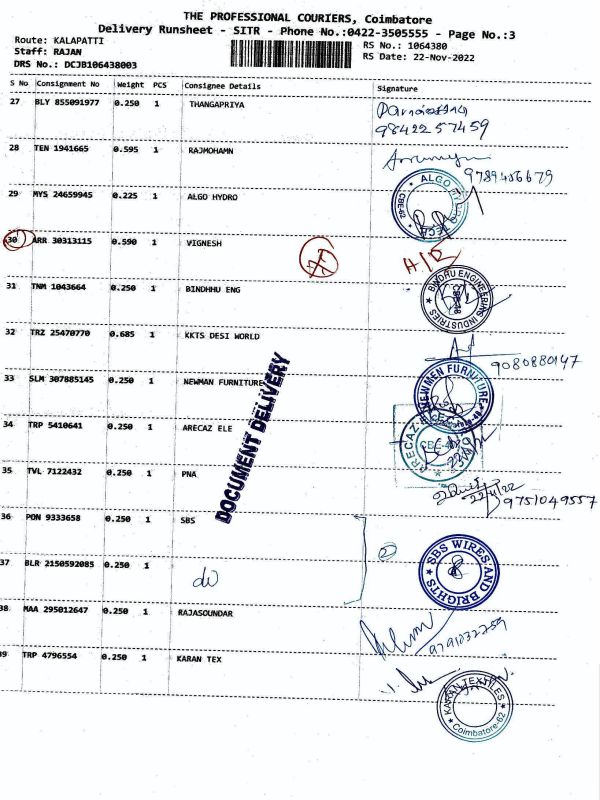 THE PROFESSIONAL COURIERS, Coimbatore
Delivery Runsheet - SITR - Phone No.:0422-3505555 - Page No.:3
Route: KALAPATTI
Staff: RAJAN
DRS No.: DCJB106438003
RS No.: 1064380
RS Date: 22-Nov-2022
S No Consignment No Weight PCS Consignee Details Signature
27 BLY 855091977 0.250 1 THANGAPRIYA
98422 57459
28 TEN 1941665 0.595 1 RAJMOHAMN
9789456679
29 MYS 24659945 0.225 1 ALGO HYDRO
ALGO
CBE-62
30 ARR 30313115 0.590 1 VIGNESH
H/R
31 TNM 1043664 0.250 1 BINDHHU ENG
BINDHU ENGINEERING INDUSTRIES
32 TRZ 25470770 0.685 1 KKTS DESI WORLD
9080880147
33 SLM 307885145 0.250 1 NEWMAN FURNITURE
NEWMEN FURNITURE
DOCUMENT DELIVERY
34 TRP 5410641 0.250 1 ARECAZ ELE
ARECAZ
35 TVL 7122432 0.250 1 PNA
22/11/22
9751049557
36 PON 9333658 0.250 1 SBS
2
SBS WIRES AND BRIGHTS
37 BLR 2150592085 0.250 1 do
38 MAA 295012647 0.250 1 RAJASOUNDAR
9791032759
39 TRP 4796554 0.250 1 KARAN TEX
KARAN TEXTILES
Coimbatore-62